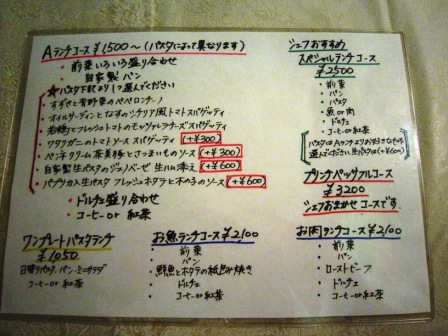 Aランチコース ¥1,500〜 (パスタによって異なります)
・前菜いろいろ盛り合わせ
・自家製パン
★パスタ下記より1つ選んでください
・すずきと青野菜のペペロンチーノ
・オイルサーディンとなすのシチリア風トマトスパゲッティ
・若鶏とフレッシュトマトのモッツァレラチーズスパゲッティ
・ワタリガニのトマトソーススパゲッティ (+¥300)
・ペンネクリーム茶美豚とさつまいものソース (+¥300)
・自家製生パスタのジェノベーゼ 生ハム添え (+¥600)
・パプリカ入生パスタ フレッシュホタテと木の子のソース (+¥600)
・ドルチェ盛り合わせ
・コーヒー or 紅茶
ワンプレートパスタランチ
¥1,050
日替りパスタ.パン.ミニサラダ
コーヒー or 紅茶
お魚ランチコース ¥2,100
・前菜
・パン
・鮮魚とホタテの紙包み焼き
・ドルチェ
・コーヒー or 紅茶
シェフおすすめ
スペシャルランチコース
¥2500
・前菜
・パン
・パスタ
・魚 or 肉
・ドルチェ
・コーヒー or 紅茶
パスタはAランチよりお好きなもの
選んでください.生パスタは(+¥600)
プリンチペッサフルコース
¥3200
シェフおまかせコースです.
お肉ランチコース ¥2,100
・前菜
・パン
・ローストビーフ
・ドルチェ
・コーヒー or 紅茶